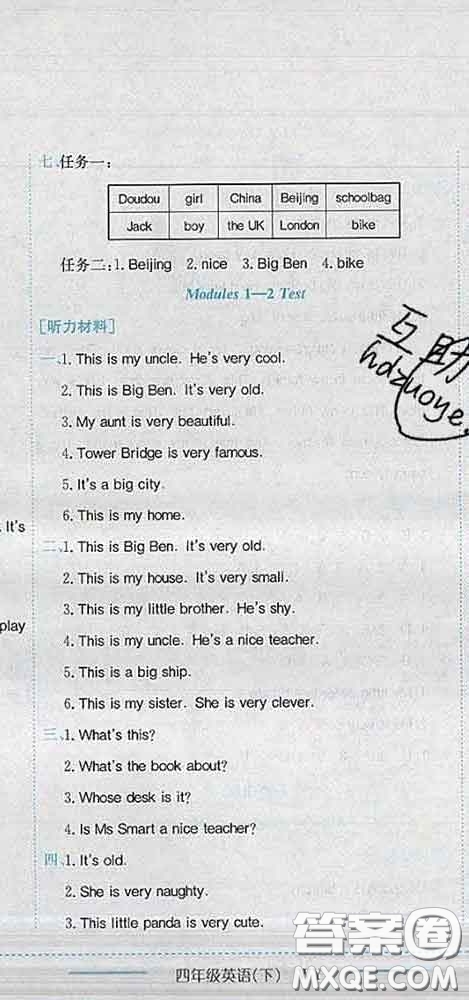 七、任务一：
Doudou girl China Beijing schoolbag
Jack boy the UK London bike
任务二：1. Beijing 2. nice 3. Big Ben 4. bike
Modules 1—2 Test
[听力材料]
一、1. This is my uncle. He's very cool.
2. This is Big Ben. It's very old.
3. My aunt is very beautiful.
4. Tower Bridge is very famous.
5. It's a big city.
6. This is my home.
It's
二、1. This is Big Ben. It's very old.
2. This is my house. It's very small.
3. This is my little brother. He's shy.
play
4. This is my uncle. He's a nice teacher.
5. This is a big ship.
6. This is my sister. She is very clever.
三、1. What's this?
2. What's the book about?
3. Whose desk is it?
4. Is Ms Smart a nice teacher?
四、1. It's old.
2. She is very naughty.
3. This little panda is very cute.
四年级英语(下)
互助
hdzuoye.
答案圈
MXQE.COM